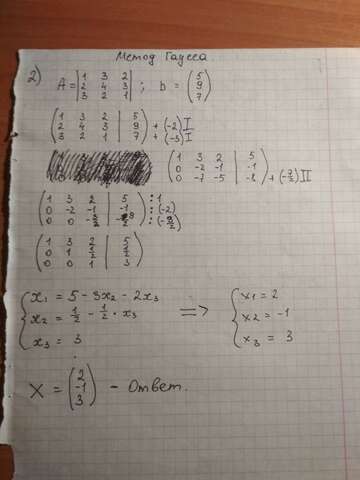 Метод Гаусса.
2) A = |1 3 2; 2 4 3; 3 2 1| ; b = (5; 9; 7)
(1 3 2 | 5
2 4 3 | 9 + (-2) I
3 2 1 | 7) + (-3) I
(1 3 2 | 5
0 -2 -1 | -1
0 -7 -5 | -8) + (-7/2) II
(1 3 2 | 5 : 1
0 -2 -1 | -1 : (-2)
0 0 -3/2 | -9/2) : (-3/2)
(1 3 2 | 5
0 1 1/2 | 1/2
0 0 1 | 3)
{ x1 = 5 - 3x2 - 2x3
x2 = 1/2 - 1/2 · x3
x3 = 3
=> { x1 = 2
x2 = -1
x3 = 3
X = (2; -1; 3) - Ответ.